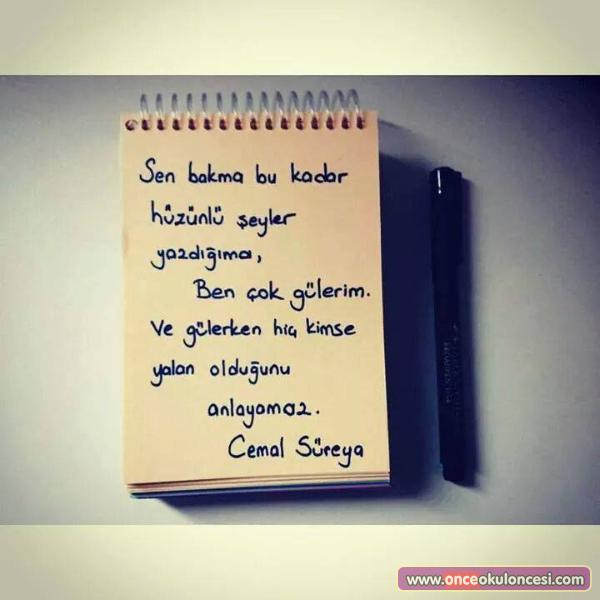 Sen bakma bu kadar
hüzünlü şeyler
yazdığıma,
Ben çok gülerim.
Ve gülerken hiç kimse
yalan olduğunu
anlayamaz.
Cemal Süreya
www.onceokuloncesi.com